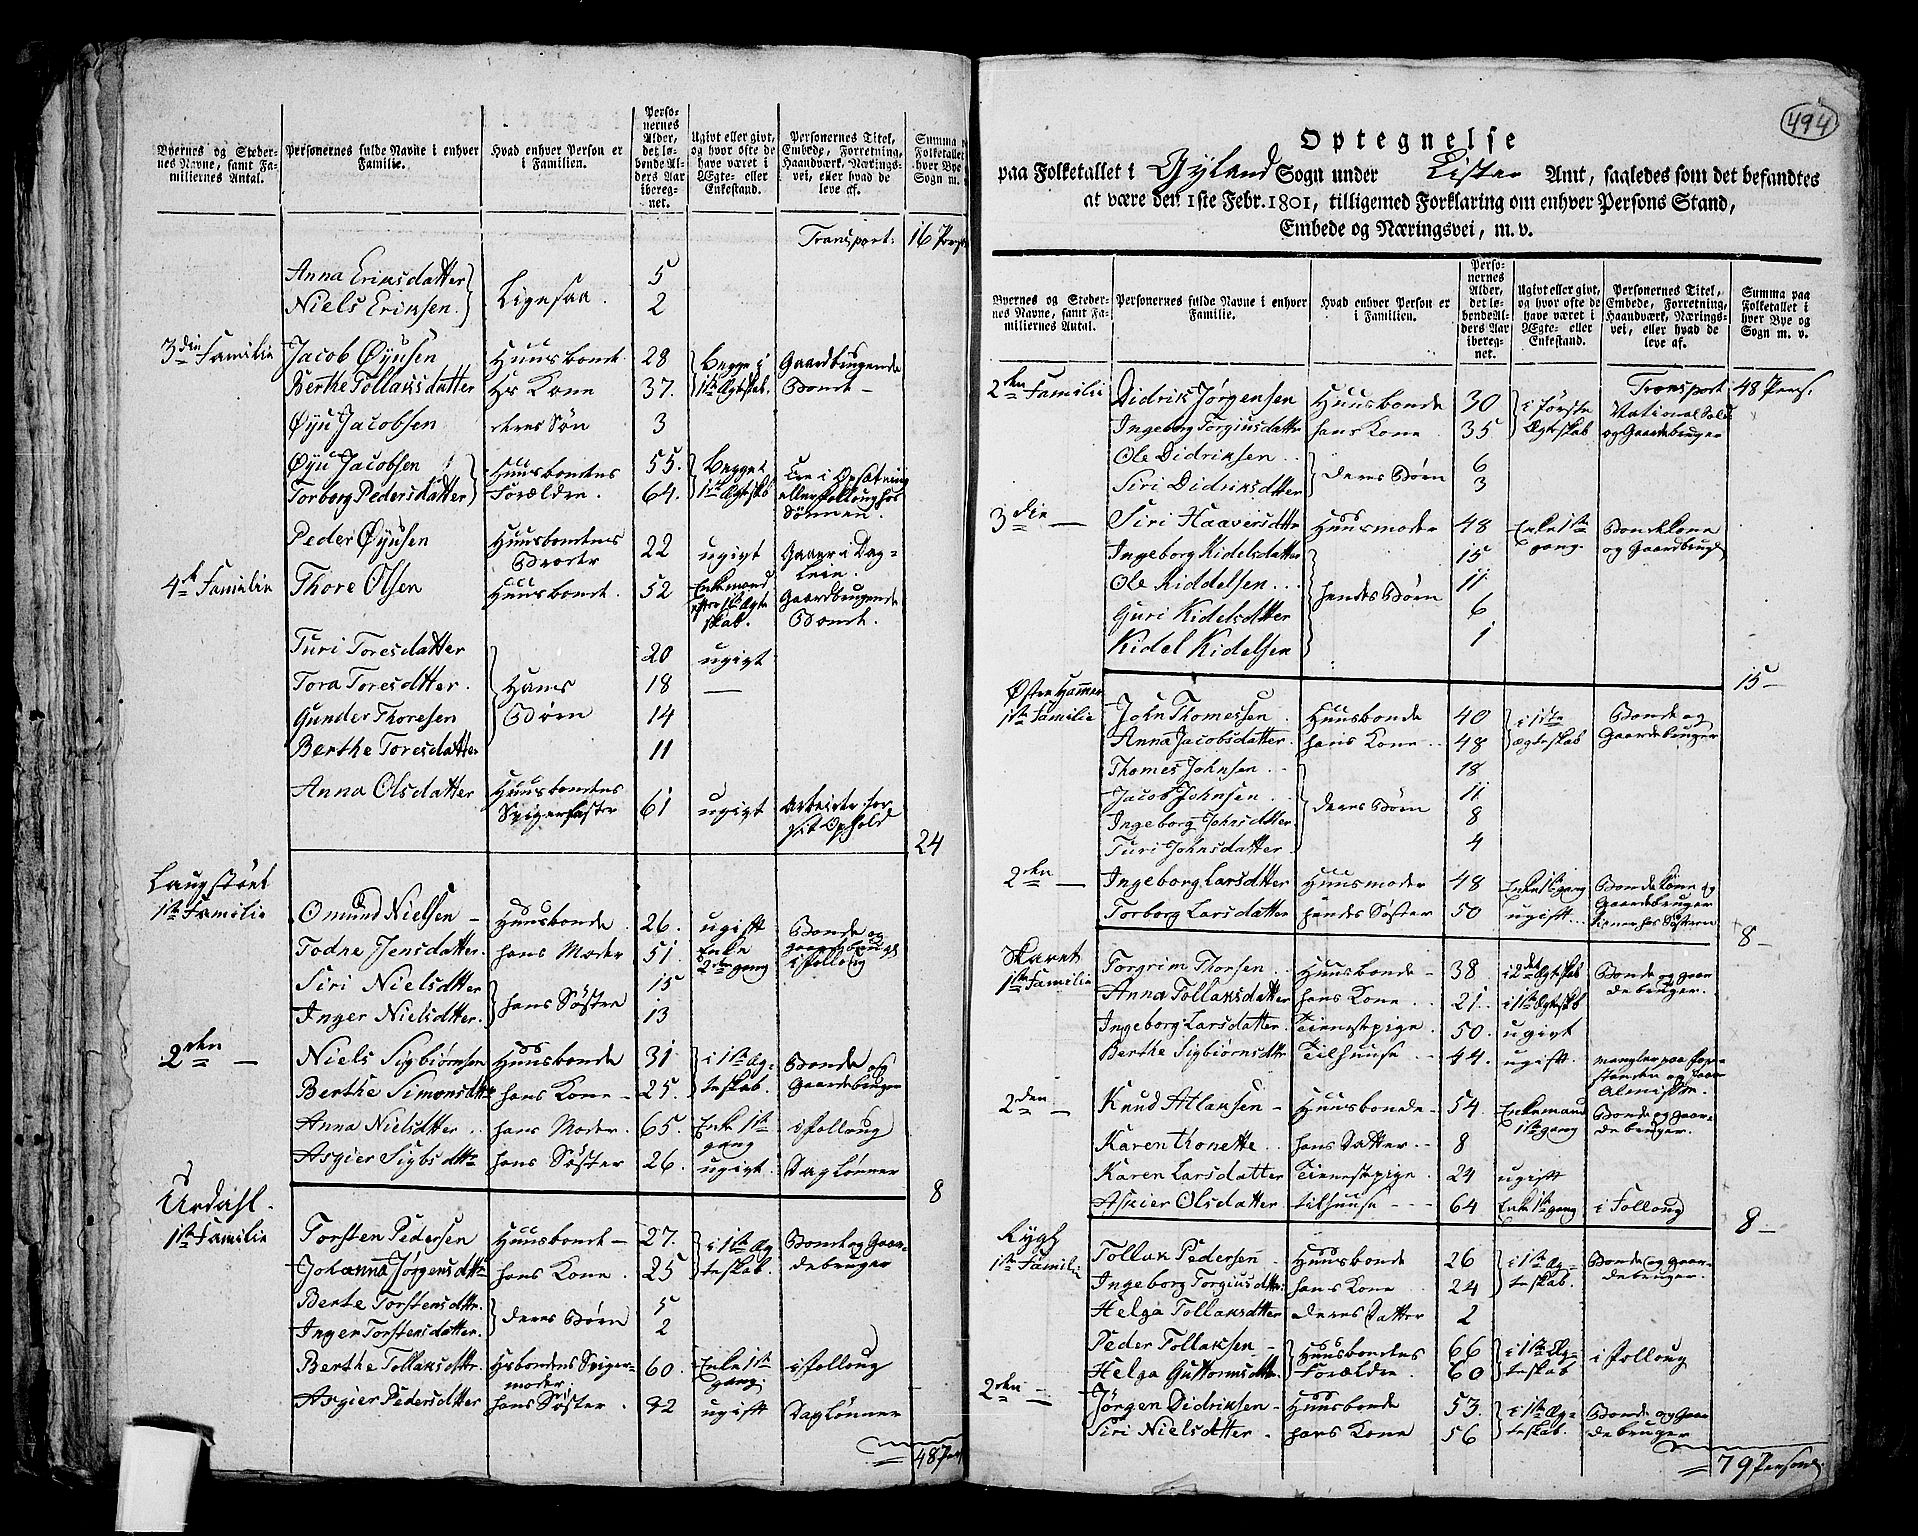 Byernes og Stedernes Navne, samt Familiernes Antal.
Personernes fulde Navne i enhver Familie.
Hvad enhver Person er i Familien.
Personernes Alder, det løbende Alders Aar iberegnet.
Ugivt eller givt, og hvor ofte de have været i Ægte- eller Enkestand.
Personernes Titel, Embede, Forretning, Haandværk, Næringsvei, eller hvad de leve af.
Summa Folketallet hver Bye Sogn m.
Transport: 16 Pers
Anna Eriksdatter } Ligesaa. 5
Niels Eriksen. } 2
3die Familie Jacob Øyusen Huusbonde. 28 Begge i Gaardbrugende
Berthe Tollaksdatter Hs Kone 37. 1ste Ægteskab. Bonde –
Øyu Jacobsen deres Søn 3
Øyu Jacobsen } Huusbondens 55. Begge i
Torborg Pedersdatter } Forældre. 64. 1ste Ægtesk. eller Folloug hos Sønnen.
Peder Øyusen Huusbondens Broder 22 ugigt Gaaer i Dagleie.
4de Familie Thore Olsen Huusbonde. 52 Enkemand efter 1ste Ægteskab. Gaardbrugende Bonde.
Turi Toresdatter 20 ugigt
Tora Toresdtter. Hans 18 —
Gunder Thoresen Børn 14
Berthe Toresdatter 11
Anna Olsdatter Huusbondens 61 ugigt Arbeider for sit Ophold
24
Laugstøet
1ste Familie Omund Nielsen – Huusbonde. 26. ugift Bonde og
Todne Jensdatter. hans Moder 51. Enke 2den gang i Folloug
Siri Nielsdtter } hans Søstre 15
Inger Nielsdtter. } 13
2den — Niels Sigbiørnsen Huusbonde 31 i 1ste Æg- Bonde og
Berthe Simonsdtt hans Kone – 25. teskab. Gaardebruger
Anna Nielsdtter .. hans Moder. 65. Enke 1ste gang i Follough
Asgier Sigbsdttr hans Søster 26. ugigt. Daglønner
8
Urdahl.
1ste Familie Torsten Pedersen Huusbonde – 27. i 1ste Æg- Bonde og Gaar-
Johanna Jørgensdtt hans Kone. 25 teskab. debruger
Berte Torstensdttr. } deres Børn 5
Inger Torstensdatter. } 2
Berthe Tollaksdttr. Hsbondens Svigermoder. 60. Enke 1ste gang. i Follough
Asgier Pedersdtter hans Søster. 32 ugift Daglønner
48 Per
494
Optegnelse
paa Folketallet i Gyland Sogn under Lister Amt, saaledes som det befandtes
at være den 1ste Febr. 1801, tilligemed Forklaring om enhver Persons Stand,
Embede og Næringsvei, m. v.
Byernes og Stedernes Navne, samt Familiernes Antal.
Personernes fulde Navne i enhver Familie.
Hvad enhver Person er i Familien.
Personernes Alder, det løbende Alders Aar iberegnet.
Ugivt eller givt, og hvor ofte de have været i Ægte- eller Enkestand.
Personernes Titel, Embede, Forretning, Haandværk, Næringsvei, eller hvad de leve af.
Summa paa Folketallet i hver Bye og Sogn m. v.
Transport 48 Pers.
2den Familie Didrik Jørgensen Huusbonde 30 i Første National Sold
Ingeborg Torgiusdattr hans Kone. 35 Ægteskab og Gaardebruger
Ole Didriksen .. } deres Børn 6
Siri Didriksdtter } 3
3die — Siri Haaversdttr Huusmoder 48 Enke 1ste Bondekone
Ingeborg Kidelsdatter 15 gang. og Gaardbrug
Ole Kiddelsen ... hendes Børn 11
Guri Kidelsdtter 6
Kidel Kidelsen 1
15 –
Østre Hammer
1ste Familie John Thomessen. Huusbonde 40 i 1ste Bonde og
Anna Jacobsdatter. hans Kone .. 48 ægteskab Gaardebruger
Thomes Johnsen .. 18
Jacob Johnsen .. deres Børn 11
Ingeborg Johnsdtter. 8
Turi Johnsdatter. 4
2den — Ingeborg Larsdtter Huusmoder 48 Enke 1ste gang Bondekone og Gaardebruger
Torborg Larsdatter hendes Søster 50 ugift .. tiener hos Søsteren
8 –
Skaret
1ste Familie Torgrim Thorsen .. Huusbonde – 38. i 2det Ægteskab Bonde og gaardebruger.
Anna Tollaksdatter hans Kone .. 21. i 1ste Ægteskb
Ingeborg Larsdatter. Tienestpige. 50. ugigt
Berthe Sigbiørnsdttr Tilhuuse .. 44. ugift. mangler paa Forstanden og faar Almisse.
2den — Knud Atlaksen – Huusbonde – 54 Enkemand 1ste gang Bonde og Gaardebruger.
Karen Thonette .. hans Datter .. 8
Karen Larsdatter Tienestpige. 24 ugift
Asgier Olsdatter tilhuuse – – – 64 Enke 1ste gang i Follough
8 –
Rygh
1ste Famili Tollak Pedersen – Huusbonde 26 i 1ste Æg- Bonde og gaar-
Ingeborg Torgiusdttr. hans Kone . 24 teskab. debruger.
Helga Tollaksdtter deres Datter 2
Peder Tollaksen – } Huusbondes 66 i 1ste Æg- i Follough
Helga Guttormsdtt. } Forældre 60 teskab
2den — Jørgen Didriksen – Huusbonde 53. i 1ste Æg- Bonde og Gaar-
Siri Nielsdtter . hans Kone 56 teskab. debruger
79 Persone